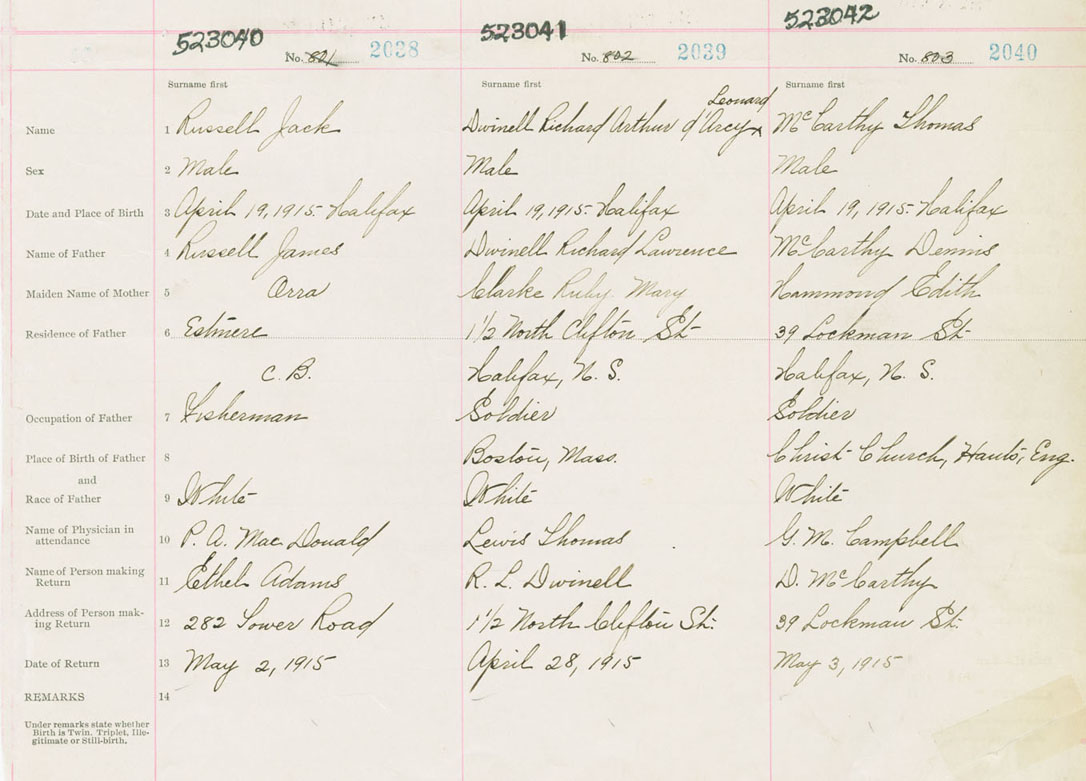 523040 523041 523042
No. 801 2038 No. 802 2039 No. 803 2040
Surname first Surname first Surname first
Leonard
Name 1 Russell Jack Dwinell Richard Arthur d'Arcy ^ McCarthy Thomas
Sex 2 Male Male Male
Date and Place of Birth 3 April 19, 1915 - Halifax April 19, 1915 - Halifax April 19, 1915 - Halifax
Name of Father 4 Russell James Dwinell Richard Lawrence McCarthy Dennis
Maiden Name of Mother 5 Orra Clarke Ruby Mary Hammond Edith
Residence of Father 6 Estmere 1½ North Clifton St. 39 Lockman St.
C. B. Halifax, N. S. Halifax, N. S.
Occupation of Father 7 Fisherman Soldier Soldier
Place of Birth of Father 8 Boston, Mass. Christ Church, Hants, Eng.
and
Race of Father 9 White White White
Name of Physician in
attendance 10 P. A. MacDonald Lewis Thomas G. M. Campbell
Name of Person making
Return 11 Ethel Adams R. L. Dwinell D. McCarthy
Address of Person mak-
ing Return 12 282 Tower Road 1½ North Clifton St. 39 Lockman St.
Date of Return 13 May 2, 1915 April 28, 1915 May 3, 1915
REMARKS 14
Under remarks state whether
Birth is Twin. Triplet, Ille-
gitimate or Still-birth.